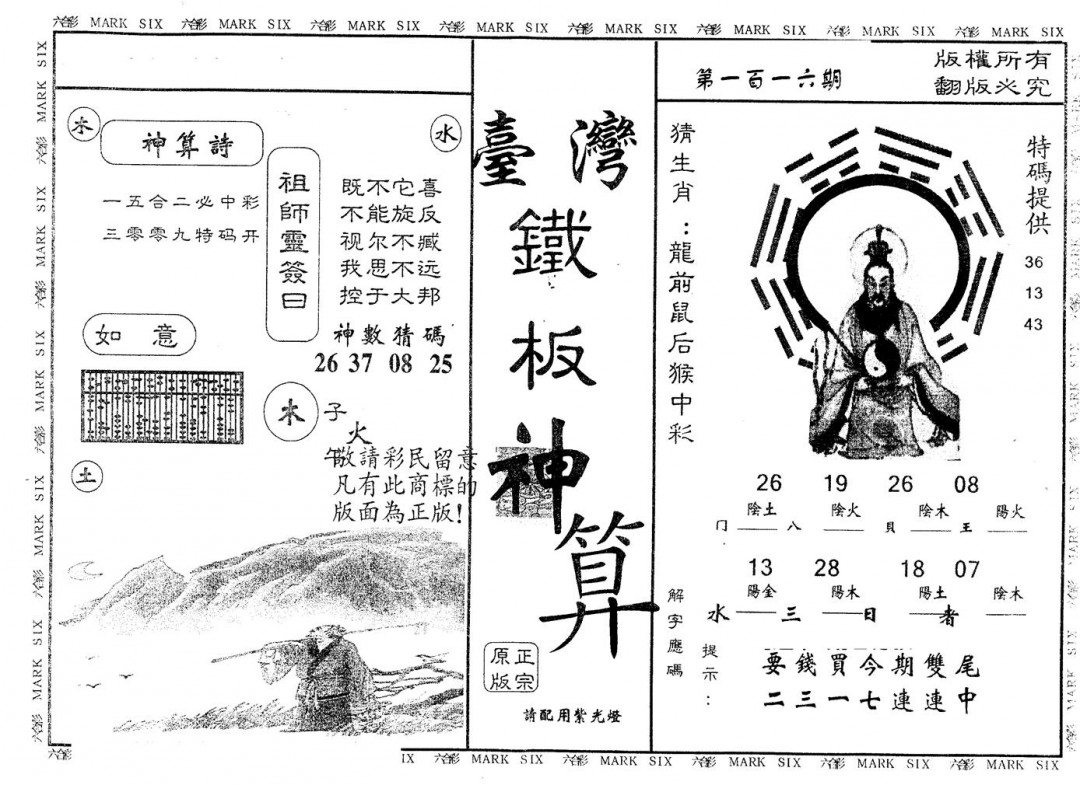 六彩 MARK SIX 六彩 MARK SIX 六彩 MARK SIX 六彩 MARK SIX 六彩 MARK SIX 六彩 MARK SIX 六彩 MARK SIX 六彩 MARK SIX
六彩 MARK SIX 六彩 MARK SIX 六彩 MARK SIX 六彩 MARK SIX 六彩 MARK SIX
木
神算詩
水
一五合二必中彩
三零零九特码开
祖師靈簽曰
既不它喜
不能旋反
视尔不臧
我思不远
控于大邦
神數猜碼
26 37 08 25
如意
木
子
火
午
敬請彩民留意
凡有此商標的
版面為正版!
土
臺灣
鐵
板
神
算
正宗
原版
請配用紫光燈
第一百一六期
版權所有
翻版必究
猜生肖:龍前鼠后猴中彩
特碼提供
36
13
43
26 19 26 08
陰土 陰火 陰木 陽火
门 八 貝 王
13 28 18 07
陽金 陽木 陽土 陰木
水 三 日 者
解字應碼
提示:
要錢買今期雙尾
二三一七連連中
六彩
IX 六彩 MARK SIX 六彩 MARK SIX 六彩 MARK SIX 六彩 MARK SIX 六彩 MARK SIX